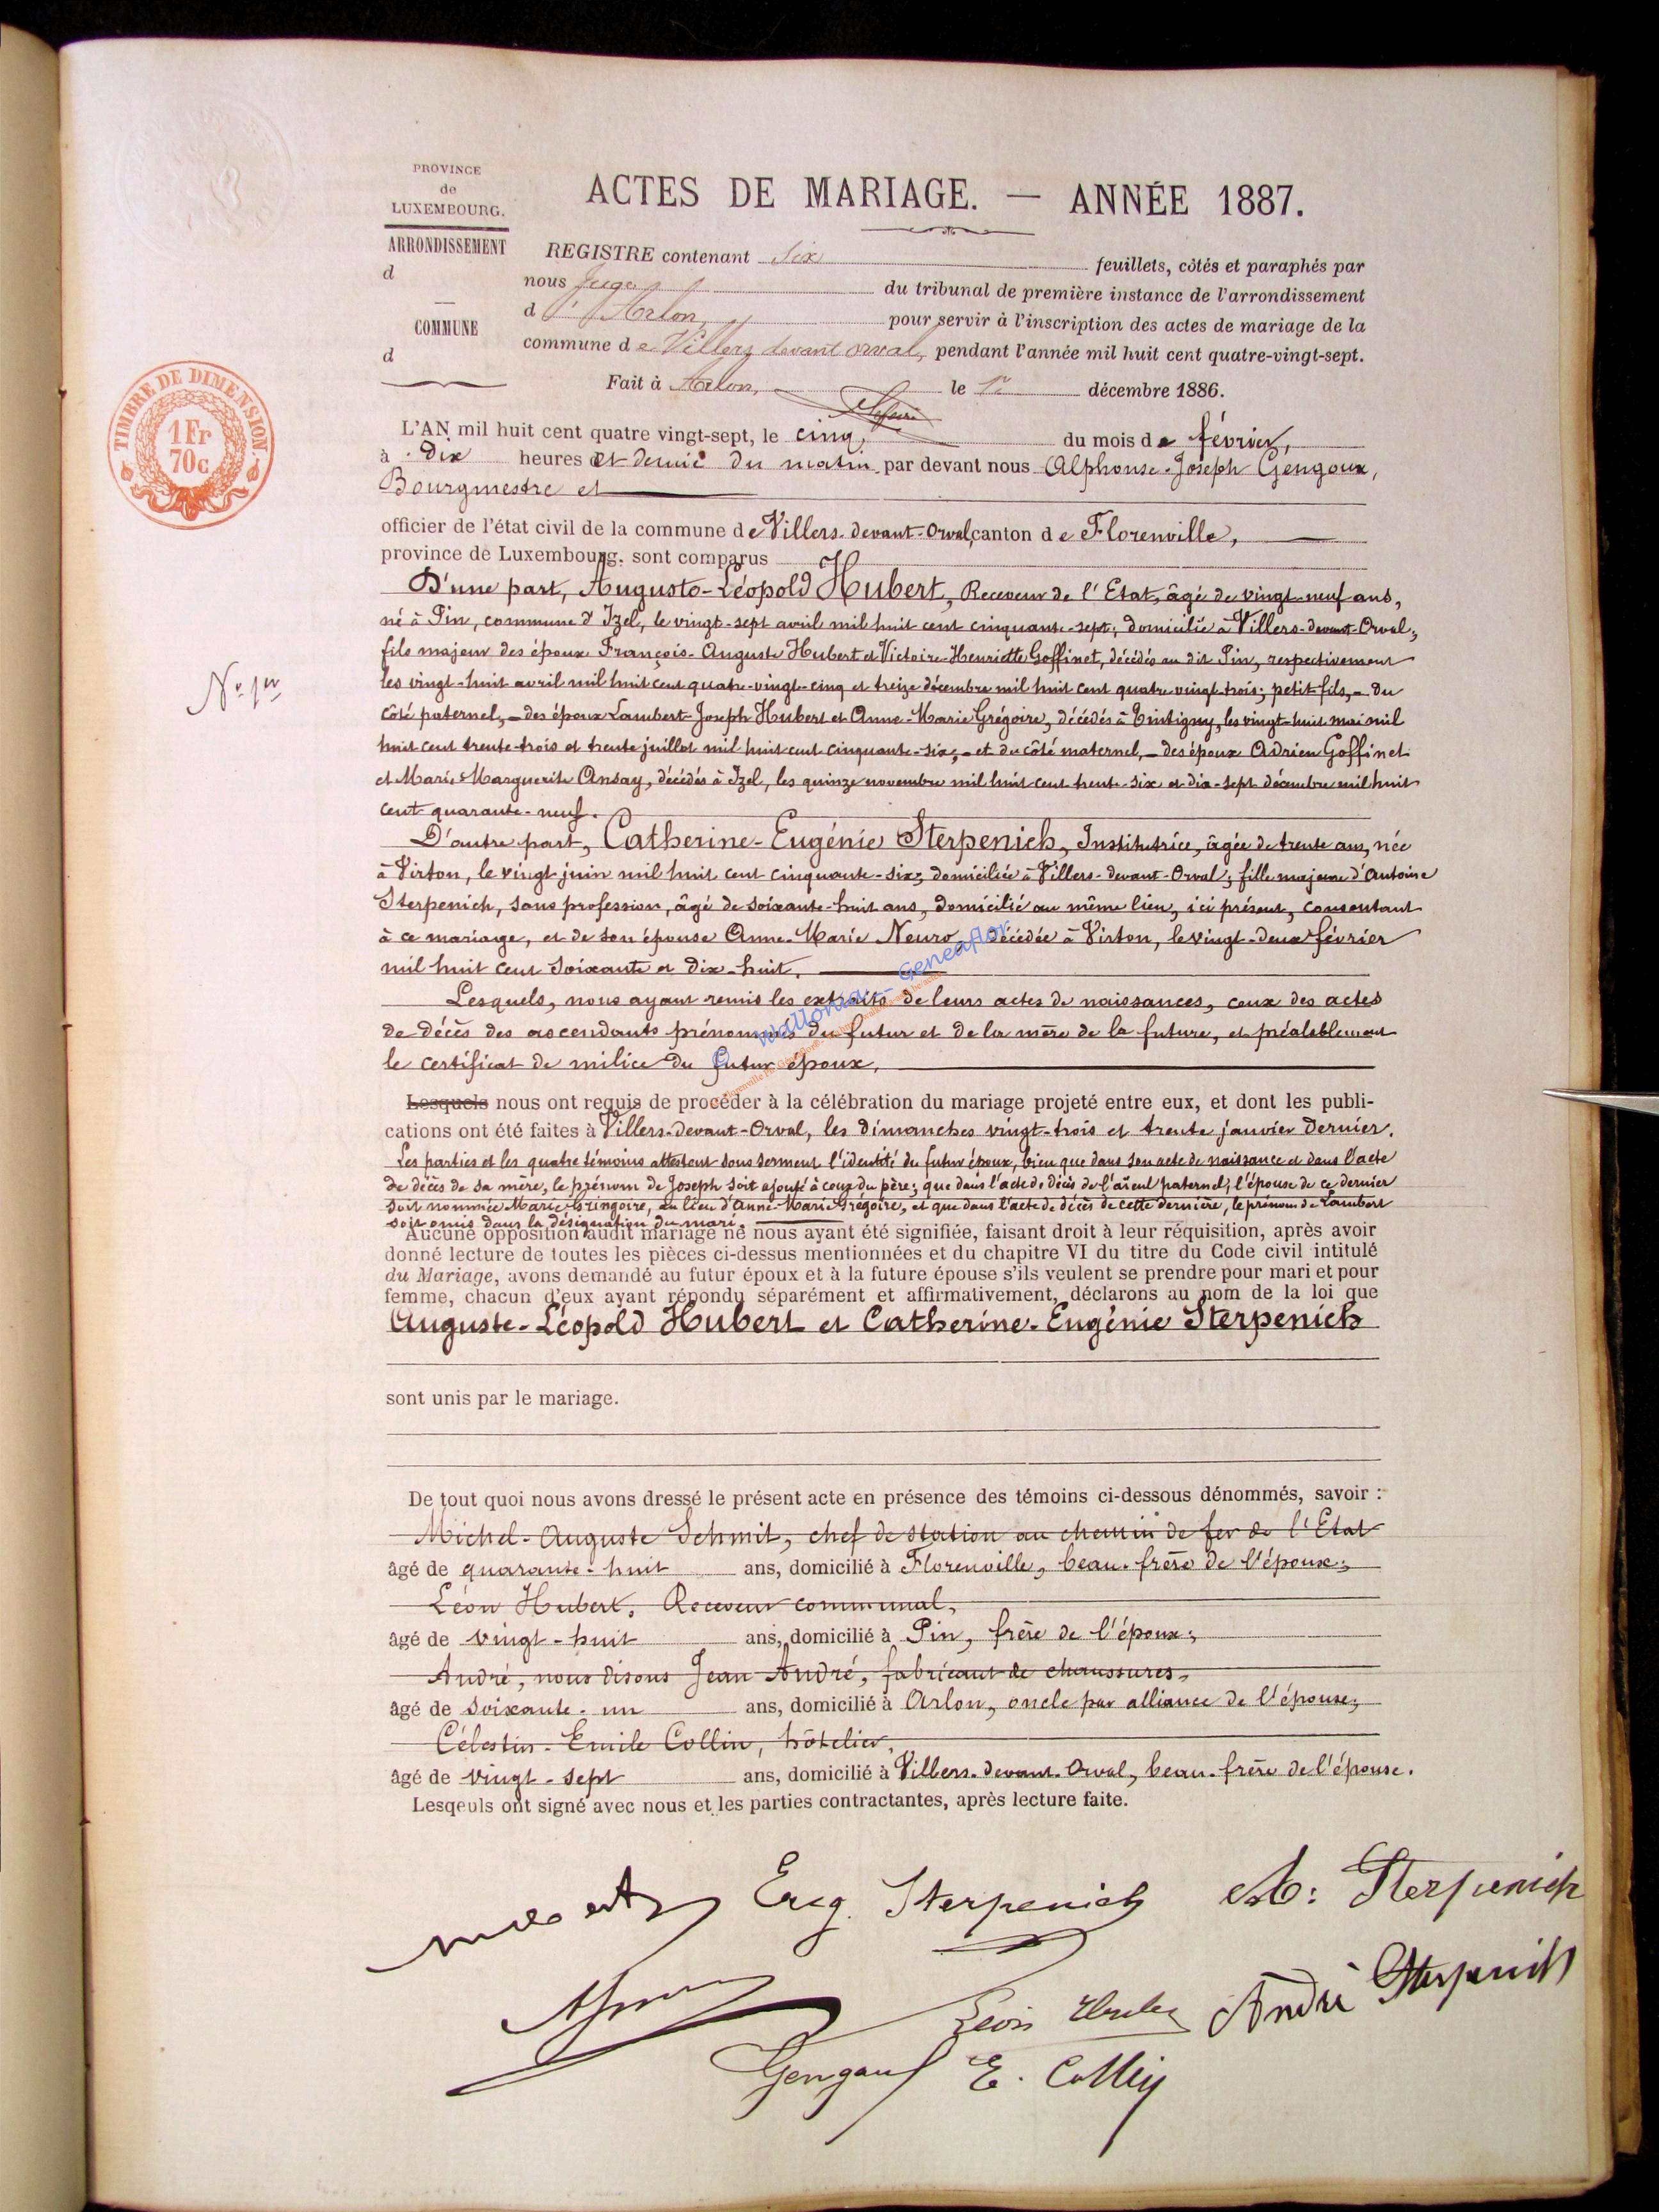 PROVINCE
de
LUXEMBOURG.
ARRONDISSEMENT
d
COMMUNE
d
ACTES DE MARIAGE. — ANNÉE 1887.
REGISTRE contenant Six feuillets, côtés et paraphés par
nous Juge du tribunal de première instance de l'arrondissement
d'Arlon, pour servir à l'inscription des actes de mariage de la
commune de Villers devant orval, pendant l'année mil huit cent quatre-vingt-sept.
Fait à Arlon, le 1er décembre 1886.
TIMBRE DE DIMENSION
1 Fr
70c
L'AN mil huit cent quatre vingt-sept, le cinq, du mois de février,
à Dix heures et demie du matin par devant nous Alphonse-Joseph Gengoux,
Bourgmestre et
officier de l'état civil de la commune de Villers-devant-Orval, canton de Florenville,
province de Luxembourg. sont comparus
D'une part, Auguste-Léopold Hubert, Receveur de l'Etat, âgé de vingt-neuf ans,
né à Pin, commune d'Izel, le vingt-sept avril mil huit cent cinquante-sept; domicilié à Villers-devant-Orval;
fils majeur des époux François-Auguste Hubert et Victoire-Henriette Goffinet, décédés au dit Pin, respectivement
N° 1er
les vingt-huit avril mil huit cent quatre-vingt-cinq et treize décembre mil huit cent quatre vingt-trois; petit-fils, - du
côté paternel, - des époux Lambert-Joseph Hubert et Anne-Marie Grégoire, décédés à Tintigny, les vingt-huit mai mil
huit cent trente-trois et trente juillet mil huit cent cinquante-six; - et du côté maternel, - des époux Adrien Goffinet
et Marie Marguerite Ansay, décédés à Izel, les quinze novembre mil huit cent trente-six et dix-sept décembre mil huit
cent quarante-neuf.
D'autre part, Catherine-Eugénie Sterpenich, Institutrice, âgée de trente ans, née
à Virton, le vingt juin mil huit cent cinquante-six; domiciliée à Villers-devant-Orval; fille majeure d'Antoine
Sterpenich, sans profession, âgé de soixante-huit ans, domicilié au même lieu, ici présent, consentant
à ce mariage, et de son épouse Anne-Marie Neuro, décédée à Virton, le vingt-deux février
mil huit cent soixante et dix-huit.
Wallonia - Geneaflor
Lesquels, nous ayant remis les extraits de leurs actes de naissances, ceux des actes
de décès des ascendants prénommés du futur et de la mère de la future, et préalablement
le certificat de milice du futur époux,
Lesquels nous ont requis de procéder à la célébration du mariage projeté entre eux, et dont les publi-
cations ont été faites à Villers-devant-Orval, les dimanches vingt-trois et trente janvier dernier.
Les parties et les quatre témoins attestent sous serment l'identité du futur époux, bien que dans son acte de naissance et dans l'acte
de décès de sa mère, le prénom de Joseph soit ajouté à ceux du père; que dans l'acte de décès de l'aïeul paternel, l'épouse de ce dernier
soit nommée Marie Gringoire, au lieu d'Anne-Marie Grégoire, et que dans l'acte de décès de cette dernière, le prénom de Lambert
soit omis dans la désignation du mari.
Aucune opposition audit mariage ne nous ayant été signifiée, faisant droit à leur réquisition, après avoir
donné lecture de toutes les pièces ci-dessus mentionnées et du chapitre VI du titre du Code civil intitulé
du Mariage, avons demandé au futur époux et à la future épouse s'ils veulent se prendre pour mari et pour
femme, chacun d'eux ayant répondu séparément et affirmativement, déclarons au nom de la loi que
Auguste-Léopold Hubert et Catherine-Eugénie Sterpenich
sont unis par le mariage.
De tout quoi nous avons dressé le présent acte en présence des témoins ci-dessous dénommés, savoir :
Michel-Auguste Schmit, chef de station au chemin de fer de l'Etat
âgé de quarante-huit ans, domicilié à Florenville, beau-frère de l'époux;
Léon Hubert, Receveur communal,
âgé de vingt-huit ans, domicilié à Pin, frère de l'époux;
André, nous disons Jean André, fabricant de chaussures,
âgé de soixante-un ans, domicilié à Arlon, oncle par alliance de l'épouse;
Célestin-Emile Collin, hôtelier,
âgé de vingt-sept ans, domicilié à Villers-devant-Orval, beau-frère de l'épouse.
Lesqeuls ont signé avec nous et les parties contractantes, après lecture faite.
Eug. Sterpenich
Sterpenich
Léon Hubert
André Sterpenich
Gengoux
E. Collin